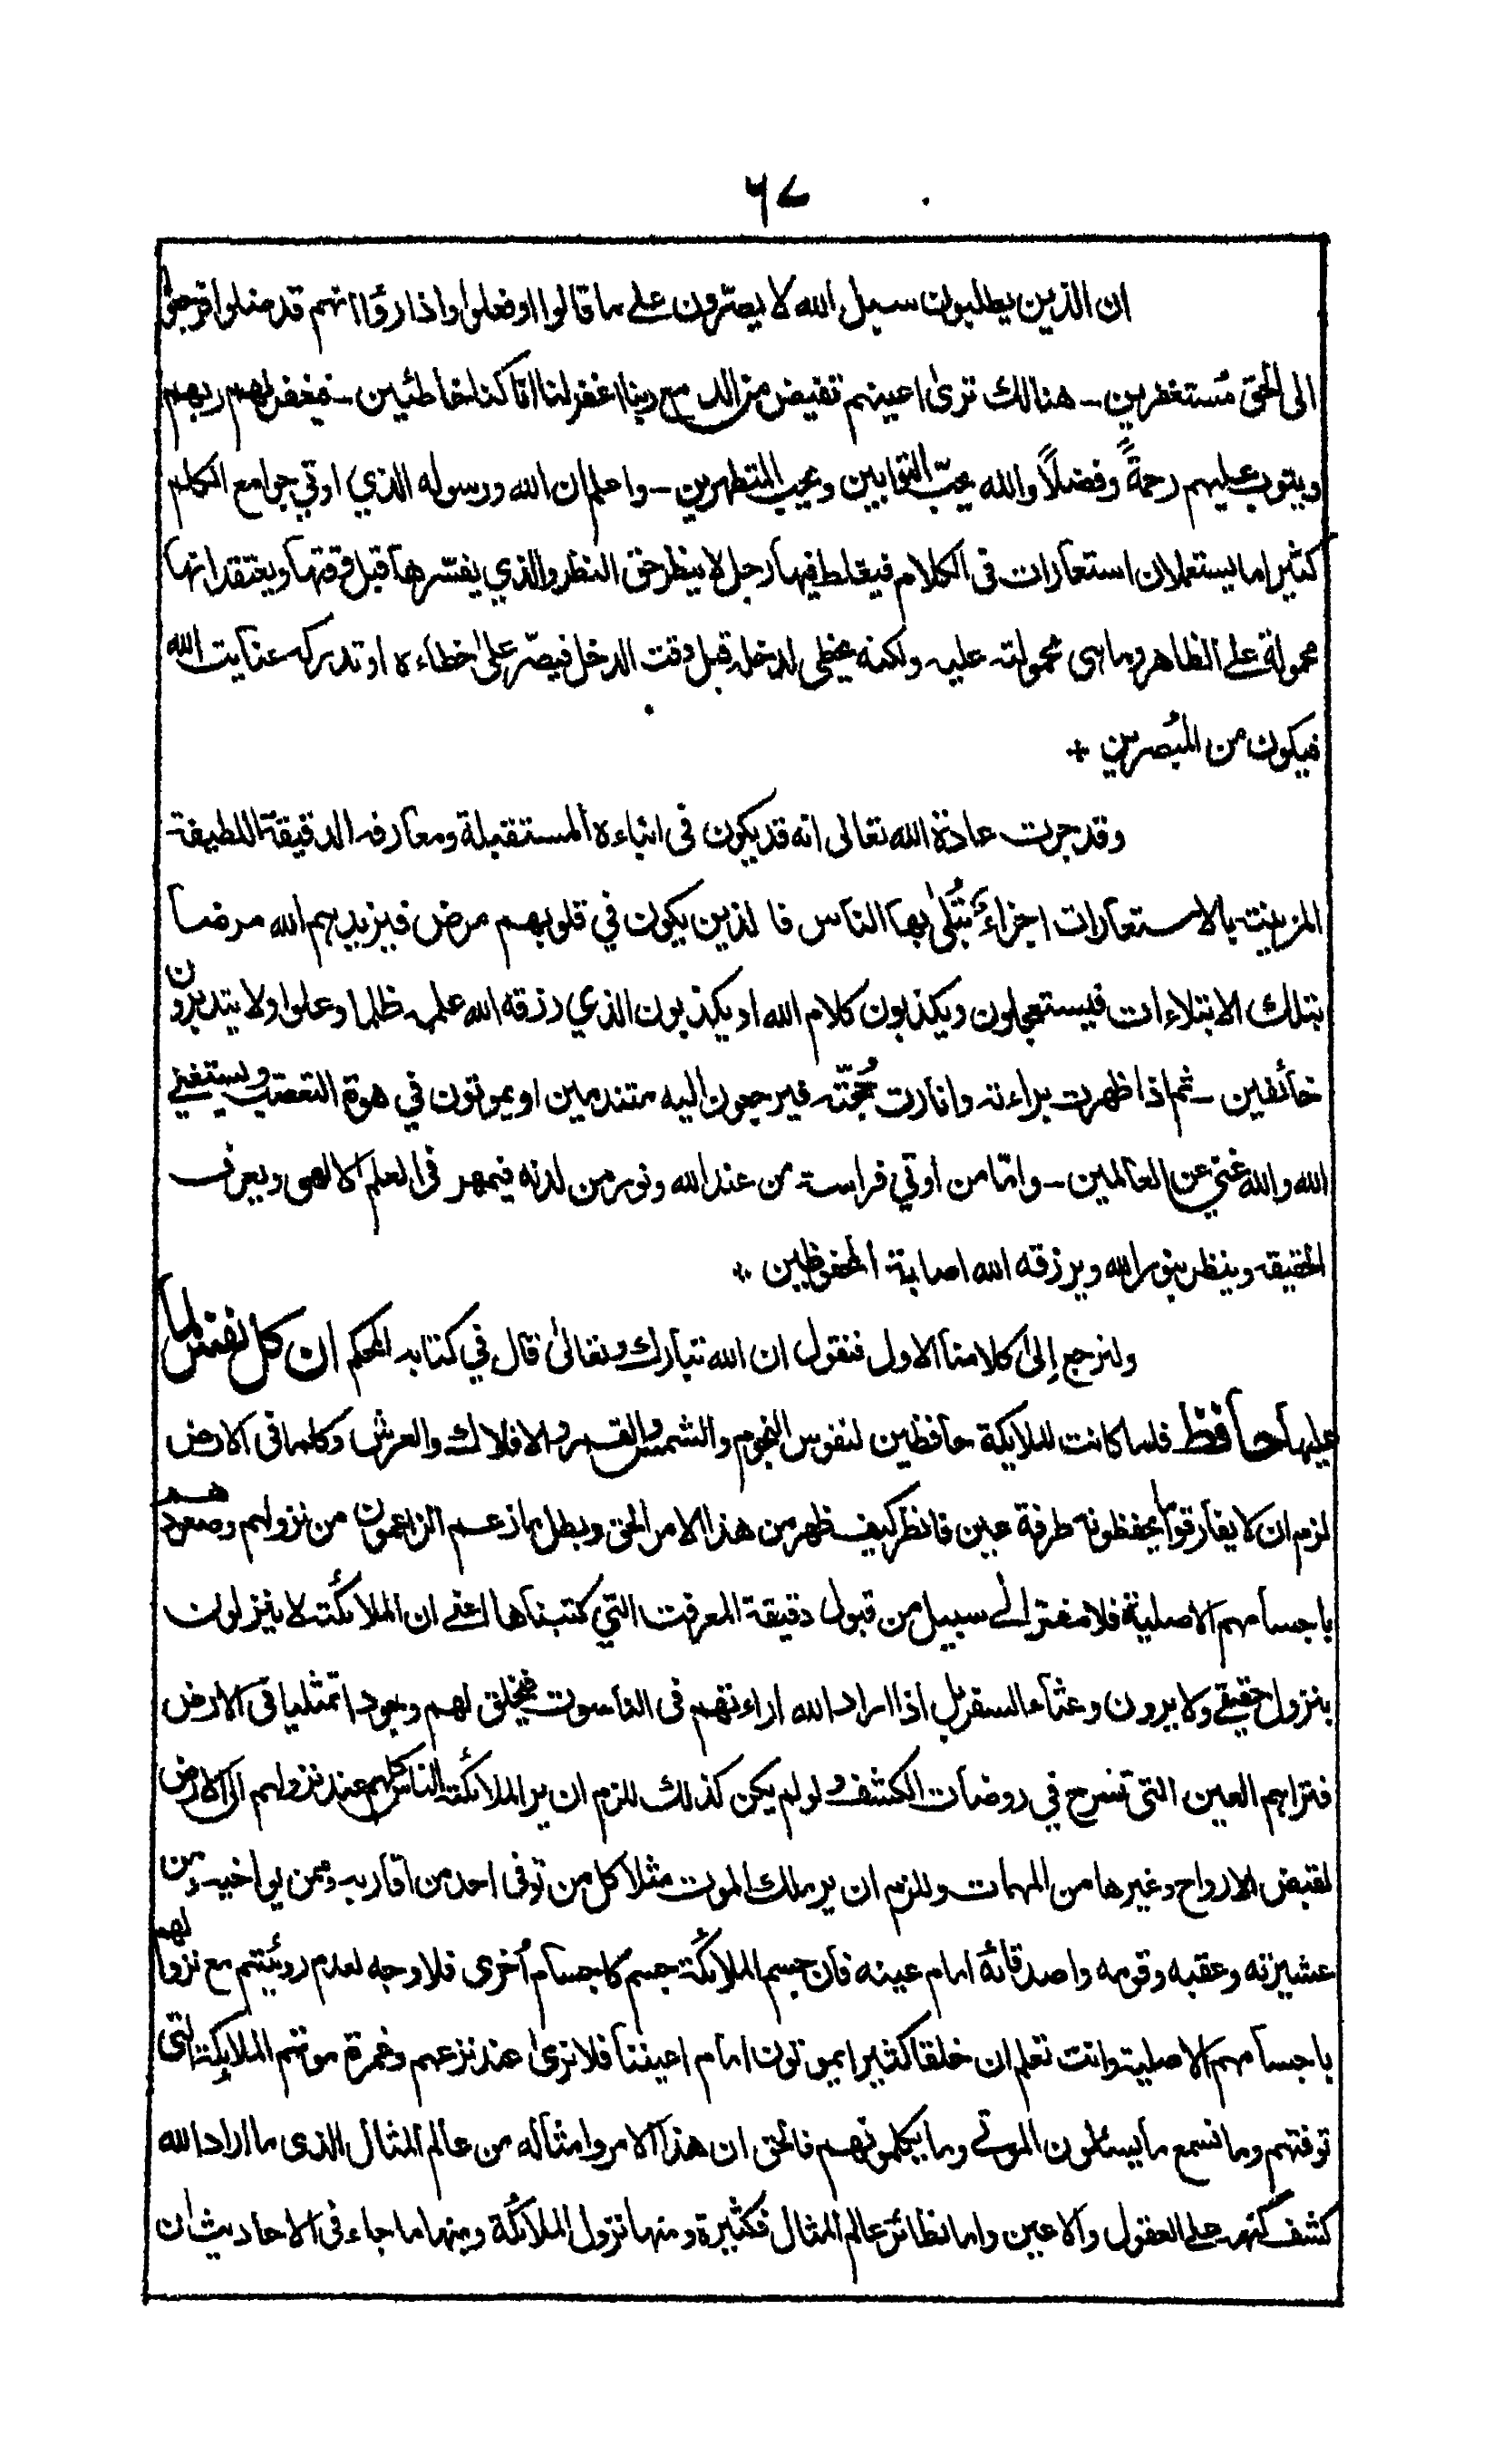 ٦٧
ان الذين يطلبون سبيل الله لا يصرّون على ما قالوا او فعلوا واذا رؤا انهم قد ضلوا فرجعوا
الى الحق مُستغفرين - هنالك ترىٰ اعينهم تفيض من الدمع ربنا اغفر لنا انا كنا خاطئين - فيغفر لهم ربهم
ويتوب عليهم رحمةً وفضلاً والله يحبّ التوابين ويحب المتطهرين - واعلم ان الله ورسوله الذي اوتي جوامع الكلم
كثيرا ما يستعملان استعارات فى الكلام فيغلط فيها رجل لا ينظر حق النظر والذي يفسّرها قبل وقتها ويعتقد انها
محمولة على الظاهر وما هى محمولة عليه ولكنه يخطى لدخله قبل وقت الدخل فيصّر على خطاءه او تدركه عنايت الله
فيكون من المُبصرين +
وقد جرت عادة الله تعالى انه قد يكون فى انباءه المستقبلة ومعارفه الدقيقة اللطيفة
المزينة بالاستعارات اجزاءٌ تُبْتَلىٰ بها الناس فالذين يكون في قلوبهم مرض فيزيدهم الله مرضا
بتلك الابتلاءات فيستعجلون ويكذبون كلام الله او يكذبون الذي رزقه الله علمه ظلما وعلوا ولا يتدبرون
خائفين - ثم اذا ظهرت براءته وانارت حُجّته فيرجعون اليه متندمين او يموتون في هوة التعصب ويستغني
الله والله غني عن العالمين - وامّا من اوتي فراسة من عند الله ونور من لدنه فيمهر فى العلم الالهى ويعرف
الحقيقه وينظر بنور الله ويرزقه الله اصابة المحفوظين ⁘
ولنرجع إلىٰ كلامنا الاول فنقول ان الله تبارك وتعالىٰ قال في كتابه المحكم ان كل نفس لما
عليها حافظ فلما كانت الملايكة حافظين لنفوس النجوم والشمس والقمر والافلاك والعرش وكلما فى الارض
لزم ان لا يفارقوا ما يحفظونه طرفة عين فانظر كيف ظهر من هذا الامر الحق وبطل ما زعم الزاعمون من نزولهم وصعودهم
باجسامهم الاصلية فلا مفتر الى سبيل من قبول دقيقة المعرفت التي كتبناها اعني ان الملائكة لا ينزلون
بنزول حقيقي ولا يرون وعثاء السفر بل اذا اراد الله اراءتهم فى الناسوت فيخلق لهم وجودا تمثليا فى الارض
فتراهم العين التى تسرح في روضات الكشف ولو لم يكن كذلك للزم ان ير الملائكة الناس كلهم عند نزولهم الى الارض
لقبض الارواح وغيرها من المهمات وللزم ان ير ملك الموت مثلا كل من توفى احد من اقاربه وممن يواخيه ومن
عشيرته وعقبه وقومه واصدقائه امام عينه فان جسم الملائكة جسم كاجسام اُخرى فلا وجه لعدم رويتهم مع نزولهم
باجسامهم الاصلية وانت تعلم ان خلقا كثيرا يموتون امام اعيننا فلا نرىٰ عند نزعهم وغمرة موتهم الملايكة التى
توفتهم وما نسمع ما يسئلون الموتى وما يكلمونهم فالحق ان هذا الامر وامثاله من عالم المثال الذى ما اراد الله
كشف كنهه على العقول والاعين واما نظائر عالم المثال فكثيرة ومنها نزول الملائكة ومنها ما جاء فى الاحاديث ان